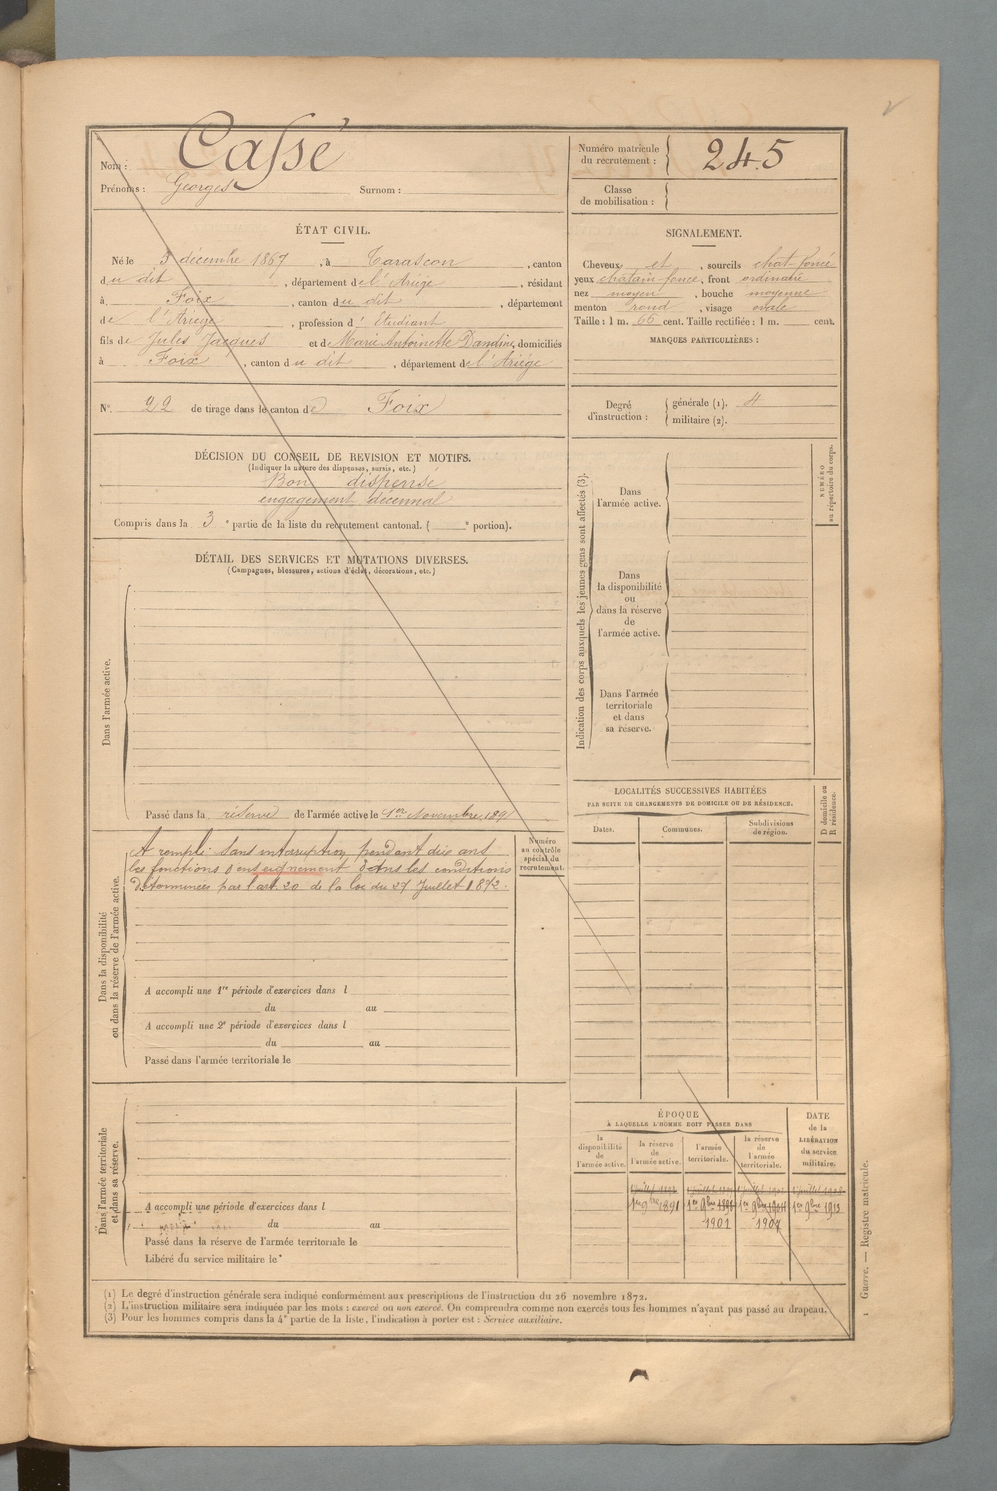 Nom : Cassé
Prénoms : Georges Surnom :
Numéro matricule du recrutement : 245
Classe de mobilisation :
ÉTAT CIVIL.
Né le 5 décembre 1867, à Tarascon, canton
du dit, département de l'Ariège, résidant
à Foix, canton du dit, département
de l'Ariège, profession d' Étudiant
fils de Jules Jacques et de Marie Antoinette Dandine, domiciliés
à Foix, canton du dit, département de l'Ariège
N° 22 de tirage dans le canton de Foix
SIGNALEMENT.
Cheveux et, sourcils chat. foncé
yeux chatain foncé, front ordinaire
nez moyen, bouche moyenne
menton rond, visage ovale
Taille : 1 m. 66 cent. Taille rectifiée : 1 m. cent.
MARQUES PARTICULIÈRES :
Degré d'instruction : générale (1). 4
militaire (2).
DÉCISION DU CONSEIL DE REVISION ET MOTIFS.
(Indiquer la nature des dispenses, sursis, etc.)
Bon dispensé
engagement décennal
Compris dans la 3e partie de la liste du recrutement cantonal. ( e portion).
DÉTAIL DES SERVICES ET MUTATIONS DIVERSES.
(Campagnes, blessures, actions d'éclat, décorations, etc.)
Dans l'armée active.
Passé dans la réserve de l'armée active le 1er Novembre 189
Dans la disponibilité
ou dans la réserve de l'armée active.
A rempli sans interruption pendant dix ans
les fonctions d'enseignement dans les conditions
déterminées par l'art. 20 de la loi du 27 Juillet 1872.
Numéro
au contrôle
spécial du
recrutement.
A accompli une 1re période d'exercices dans l
du au
A accompli une 2e période d'exercices dans l
du au
Passé dans l'armée territoriale le
Dans l'armée territoriale
et dans sa réserve.
A accompli une période d'exercices dans l
du au
Passé dans la réserve de l'armée territoriale le
Libéré du service militaire le
Indication des corps auxquels les jeunes gens sont affectés (3).
Dans
l'armée active.
Dans
la disponibilité
ou
dans la réserve
de
l'armée active.
Dans l'armée
territoriale
et dans
sa réserve.
NUMÉRO
au répertoire du corps.
LOCALITÉS SUCCESSIVES HABITÉES
PAR SUITE DE CHANGEMENTS DE DOMICILE OU DE RÉSIDENCE.
Dates. Communes. Subdivisions de région.
D domicile ou
R résidence.
ÉPOQUE
À LAQUELLE L'HOMME DOIT PASSER DANS
la disponibilité de l'armée active.
la réserve de l'armée active.
l'armée territoriale.
la réserve de l'armée territoriale.
DATE de la LIBÉRATION du service militaire.
1er 9bre 1891 1er 9bre 1898 1er 9bre 1904 1er 9bre 1912
1901 1907
(1) Le degré d'instruction générale sera indiqué conformément aux prescriptions de l'instruction du 26 novembre 1872.
(2) L'instruction militaire sera indiquée par les mots : exercé ou non exercé. On comprendra comme non exercés tous les hommes n'ayant pas passé au drapeau.
(3) Pour les hommes compris dans la 4e partie de la liste, l'indication à porter est : Service auxiliaire.
1 Guerre. — Registre matricule.